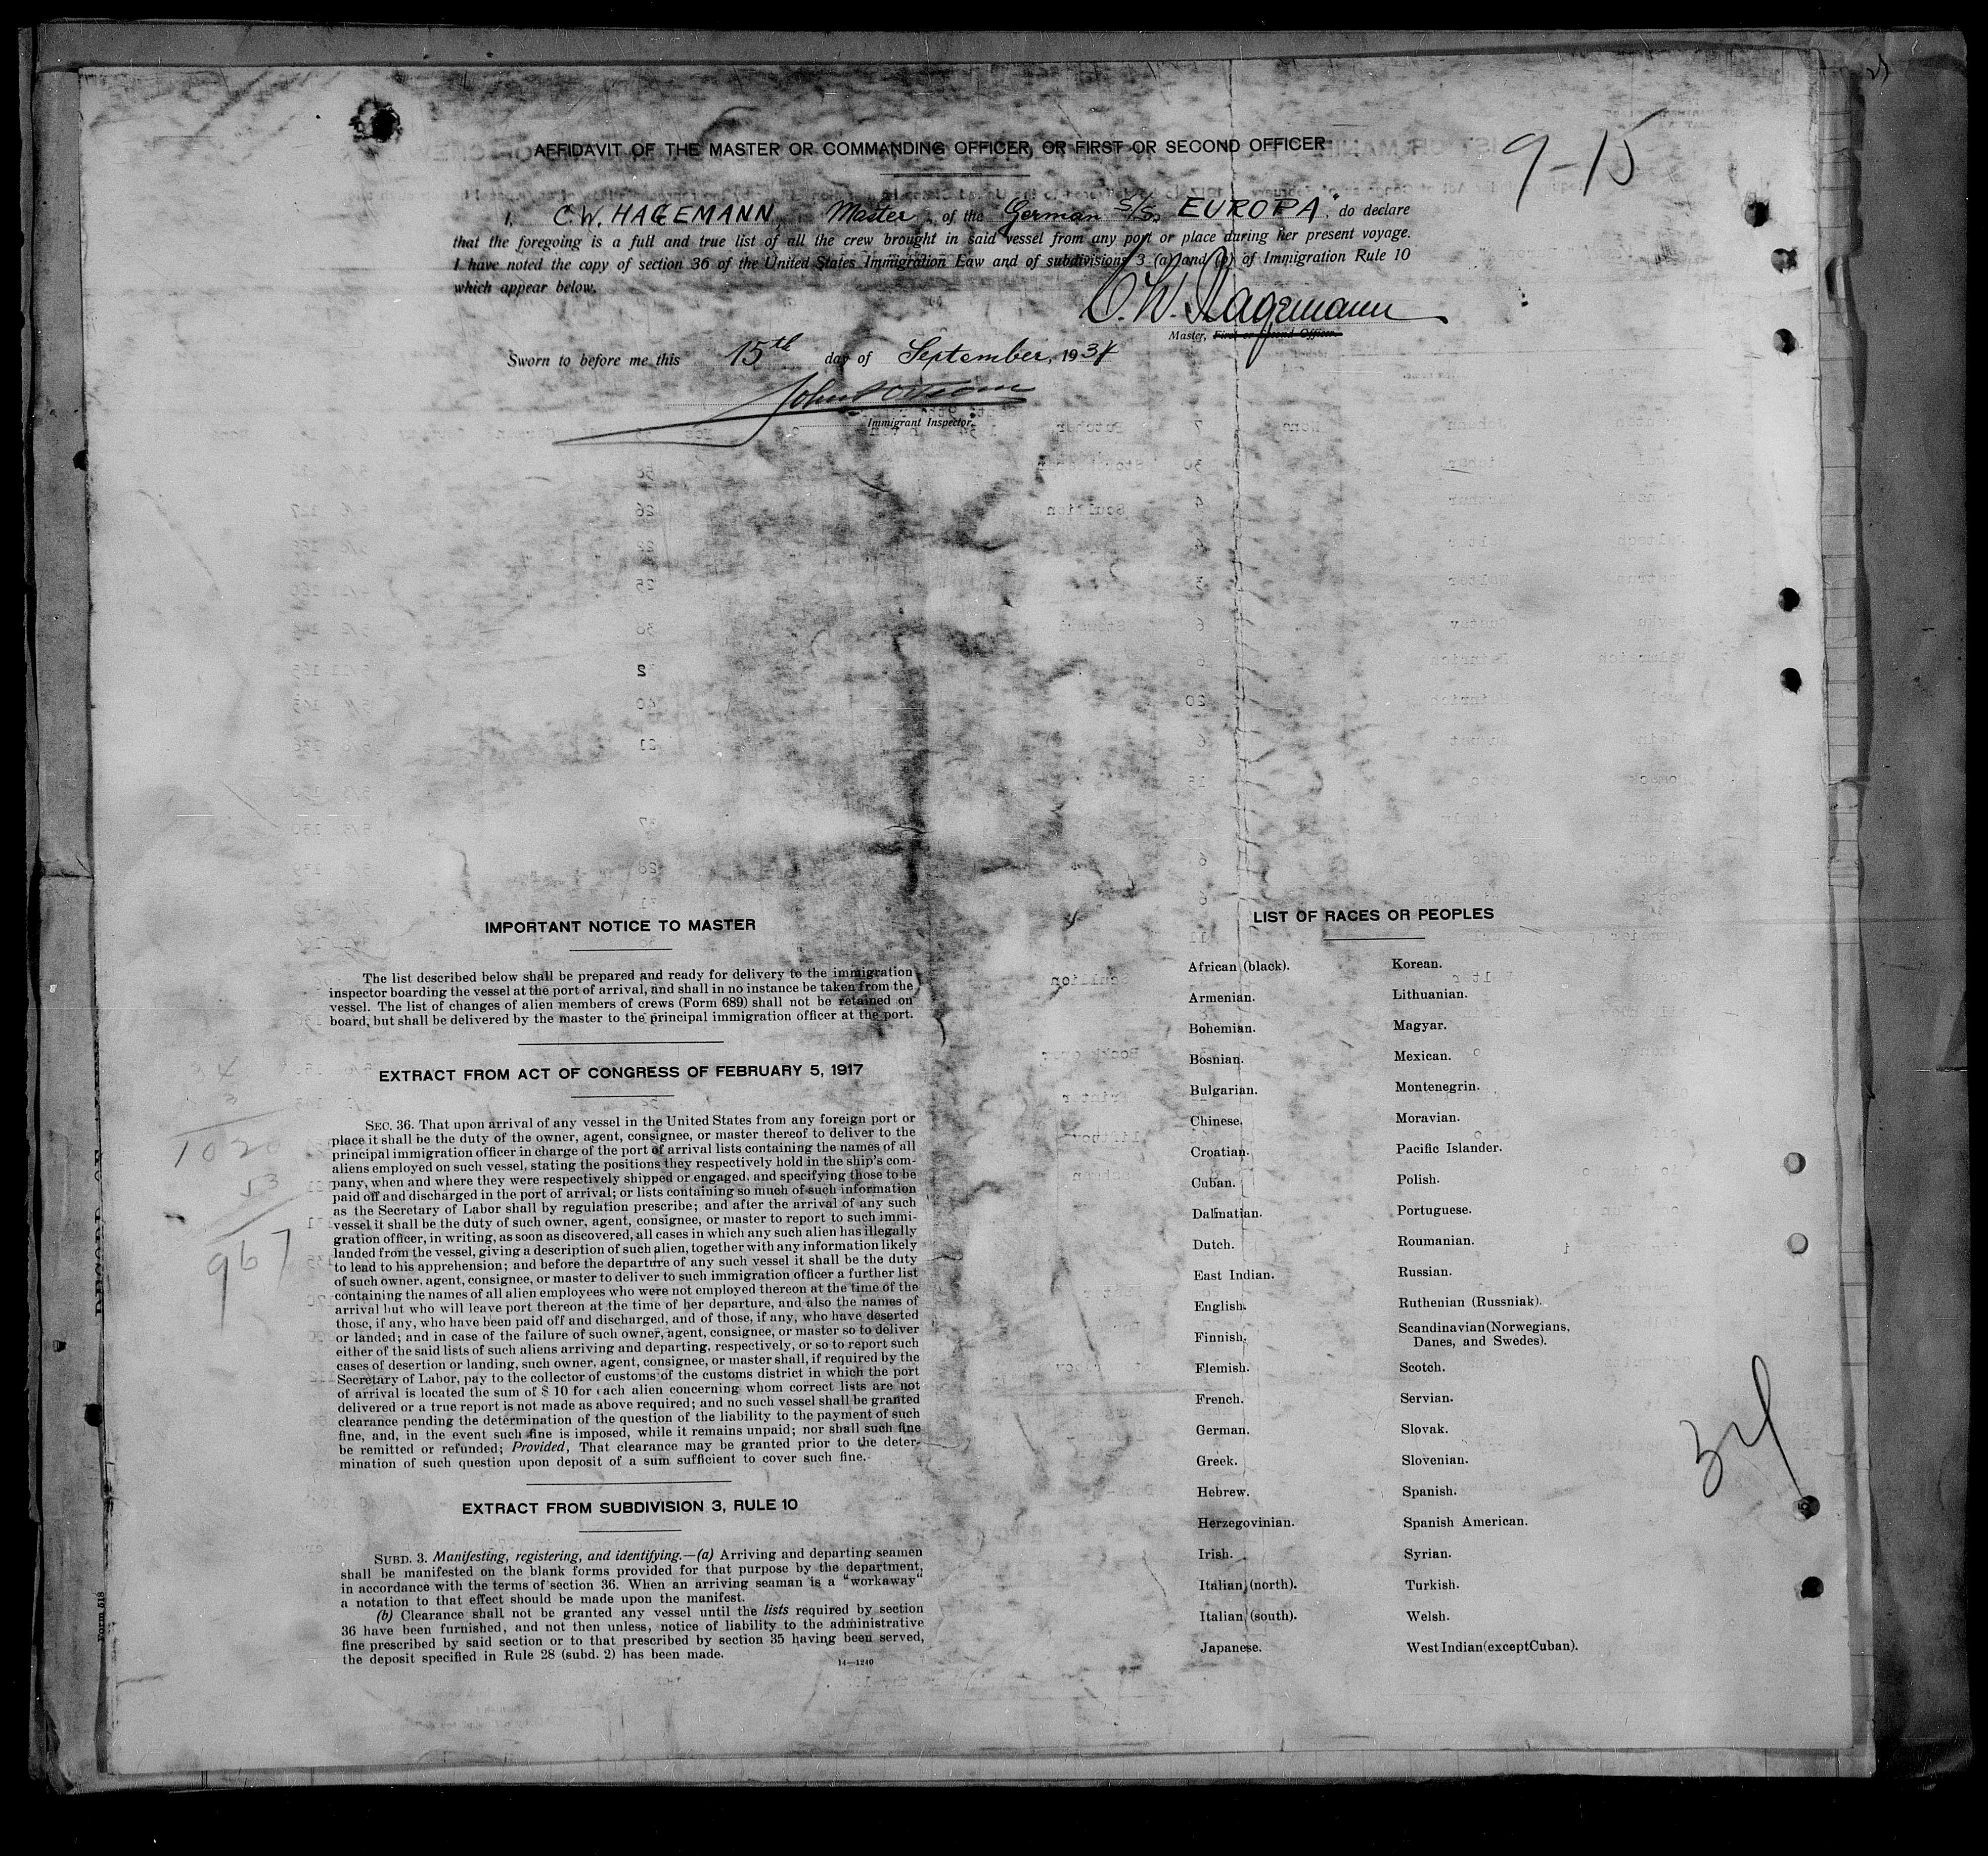 AFFIDAVIT OF THE MASTER OR COMMANDING OFFICER, OR FIRST OR SECOND OFFICER
9-15
I, C.W. HAGEMANN, Master, of the German S/S. EUROPA", do declare
that the foregoing is a full and true list of all the crew brought in said vessel from any port or place during her present voyage.
I have noted the copy of section 36 of the United States Immigration Law and of subdivisions 3 (a) and (b) of Immigration Rule 10
which appear below.
C.W. Hagemann
Master, First or Second Officer.
Sworn to before me this 15th day of September, 1934
Immigrant Inspector.
IMPORTANT NOTICE TO MASTER
The list described below shall be prepared and ready for delivery to the immigration
inspector boarding the vessel at the port of arrival, and shall in no instance be taken from the
vessel. The list of changes of alien members of crews (Form 689) shall not be retained on
board, but shall be delivered by the master to the principal immigration officer at the port.
EXTRACT FROM ACT OF CONGRESS OF FEBRUARY 5, 1917
SEC. 36. That upon arrival of any vessel in the United States from any foreign port or
place it shall be the duty of the owner, agent, consignee, or master thereof to deliver to the
principal immigration officer in charge of the port of arrival lists containing the names of all
aliens employed on such vessel, stating the positions they respectively hold in the ship's com-
pany, when and where they were respectively shipped or engaged, and specifying those to be
paid off and discharged in the port of arrival; or lists containing so much of such information
as the Secretary of Labor shall by regulation prescribe; and after the arrival of any such
vessel it shall be the duty of such owner, agent, consignee, or master to report to such immi-
gration officer, in writing, as soon as discovered, all cases in which any such alien has illegally
landed from the vessel, giving a description of such alien, together with any information likely
to lend to his apprehension; and before the departure of any such vessel it shall be the duty
of such owner, agent, consignee, or master to deliver to such immigration officer a further list
containing the names of all alien employees who were not employed thereon at the time of the
arrival but who will leave port thereon at the time of her departure, and also the names of
those, if any, who have been paid off and discharged, and of those, if any, who have deserted
or landed; and in case of the failure of such owner, agent, consignee, or master so to deliver
either of the said lists of such aliens arriving and departing, respectively, or so to report such
cases of desertion or landing, such owner, agent, consignee, or master shall, if required by the
Secretary of Labor, pay to the collector of customs of the customs district in which the port
of arrival is located the sum of $ 10 for each alien concerning whom correct lists are not
delivered or a true report is not made as above required; and no such vessel shall be granted
clearance pending the determination of the question of the liability to the payment of such
fine, and, in the event such fine is imposed, while it remains unpaid; nor shall such fine
be remitted or refunded; Provided, That clearance may be granted prior to the deter-
mination of such question upon deposit of a sum sufficient to cover such fine.
EXTRACT FROM SUBDIVISION 3, RULE 10
SUBD. 3. Manifesting, registering, and identifying.—(a) Arriving and departing seamen
shall be manifested on the blank forms provided for that purpose by the department,
in accordance with the terms of section 36. When an arriving seaman is a "workaway"
a notation to that effect should be made upon the manifest.
(b) Clearance shall not be granted any vessel until the lists required by section
36 have been furnished, and not then unless, notice of liability to the administrative
fine prescribed by said section or to that prescribed by section 35 having been served,
the deposit specified in Rule 28 (subd. 2) has been made.
14—1240
1020
53
967
Form 518
LIST OF RACES OR PEOPLES
African (black).
Armenian.
Bohemian.
Bosnian.
Bulgarian.
Chinese.
Croatian.
Cuban.
Dalmatian.
Dutch.
East Indian.
English.
Finnish.
Flemish.
French.
German.
Greek.
Hebrew.
Herzegovinian.
Irish.
Italian (north).
Italian (south).
Japanese.
Korean.
Lithuanian.
Magyar.
Mexican.
Montenegrin.
Moravian.
Pacific Islander.
Polish.
Portuguese.
Roumanian.
Russian.
Ruthenian (Russniak).
Scandinavian(Norwegians,
Danes, and Swedes).
Scotch.
Servian.
Slovak.
Slovenian.
Spanish.
Spanish American.
Syrian.
Turkish.
Welsh.
West Indian(exceptCuban).
34